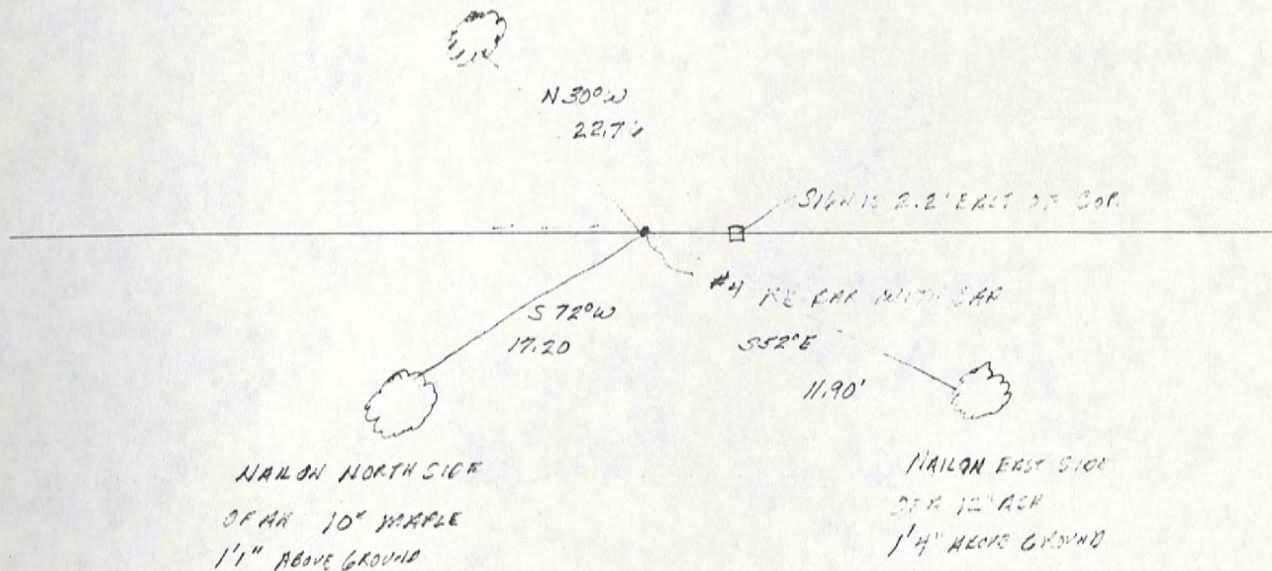 N 30° W
22.76
SIGN IS 2.2' EAST OF COR.
#4 RE-BAR WITH CAP
S 72° W
17.20
S 52° E
11.90'
NAIL ON NORTH SIDE
OF AN 10" MAPLE
1'1" ABOVE GROUND
NAIL ON EAST SIDE
OF A 12" ASH
1'4" ABOVE GROUND